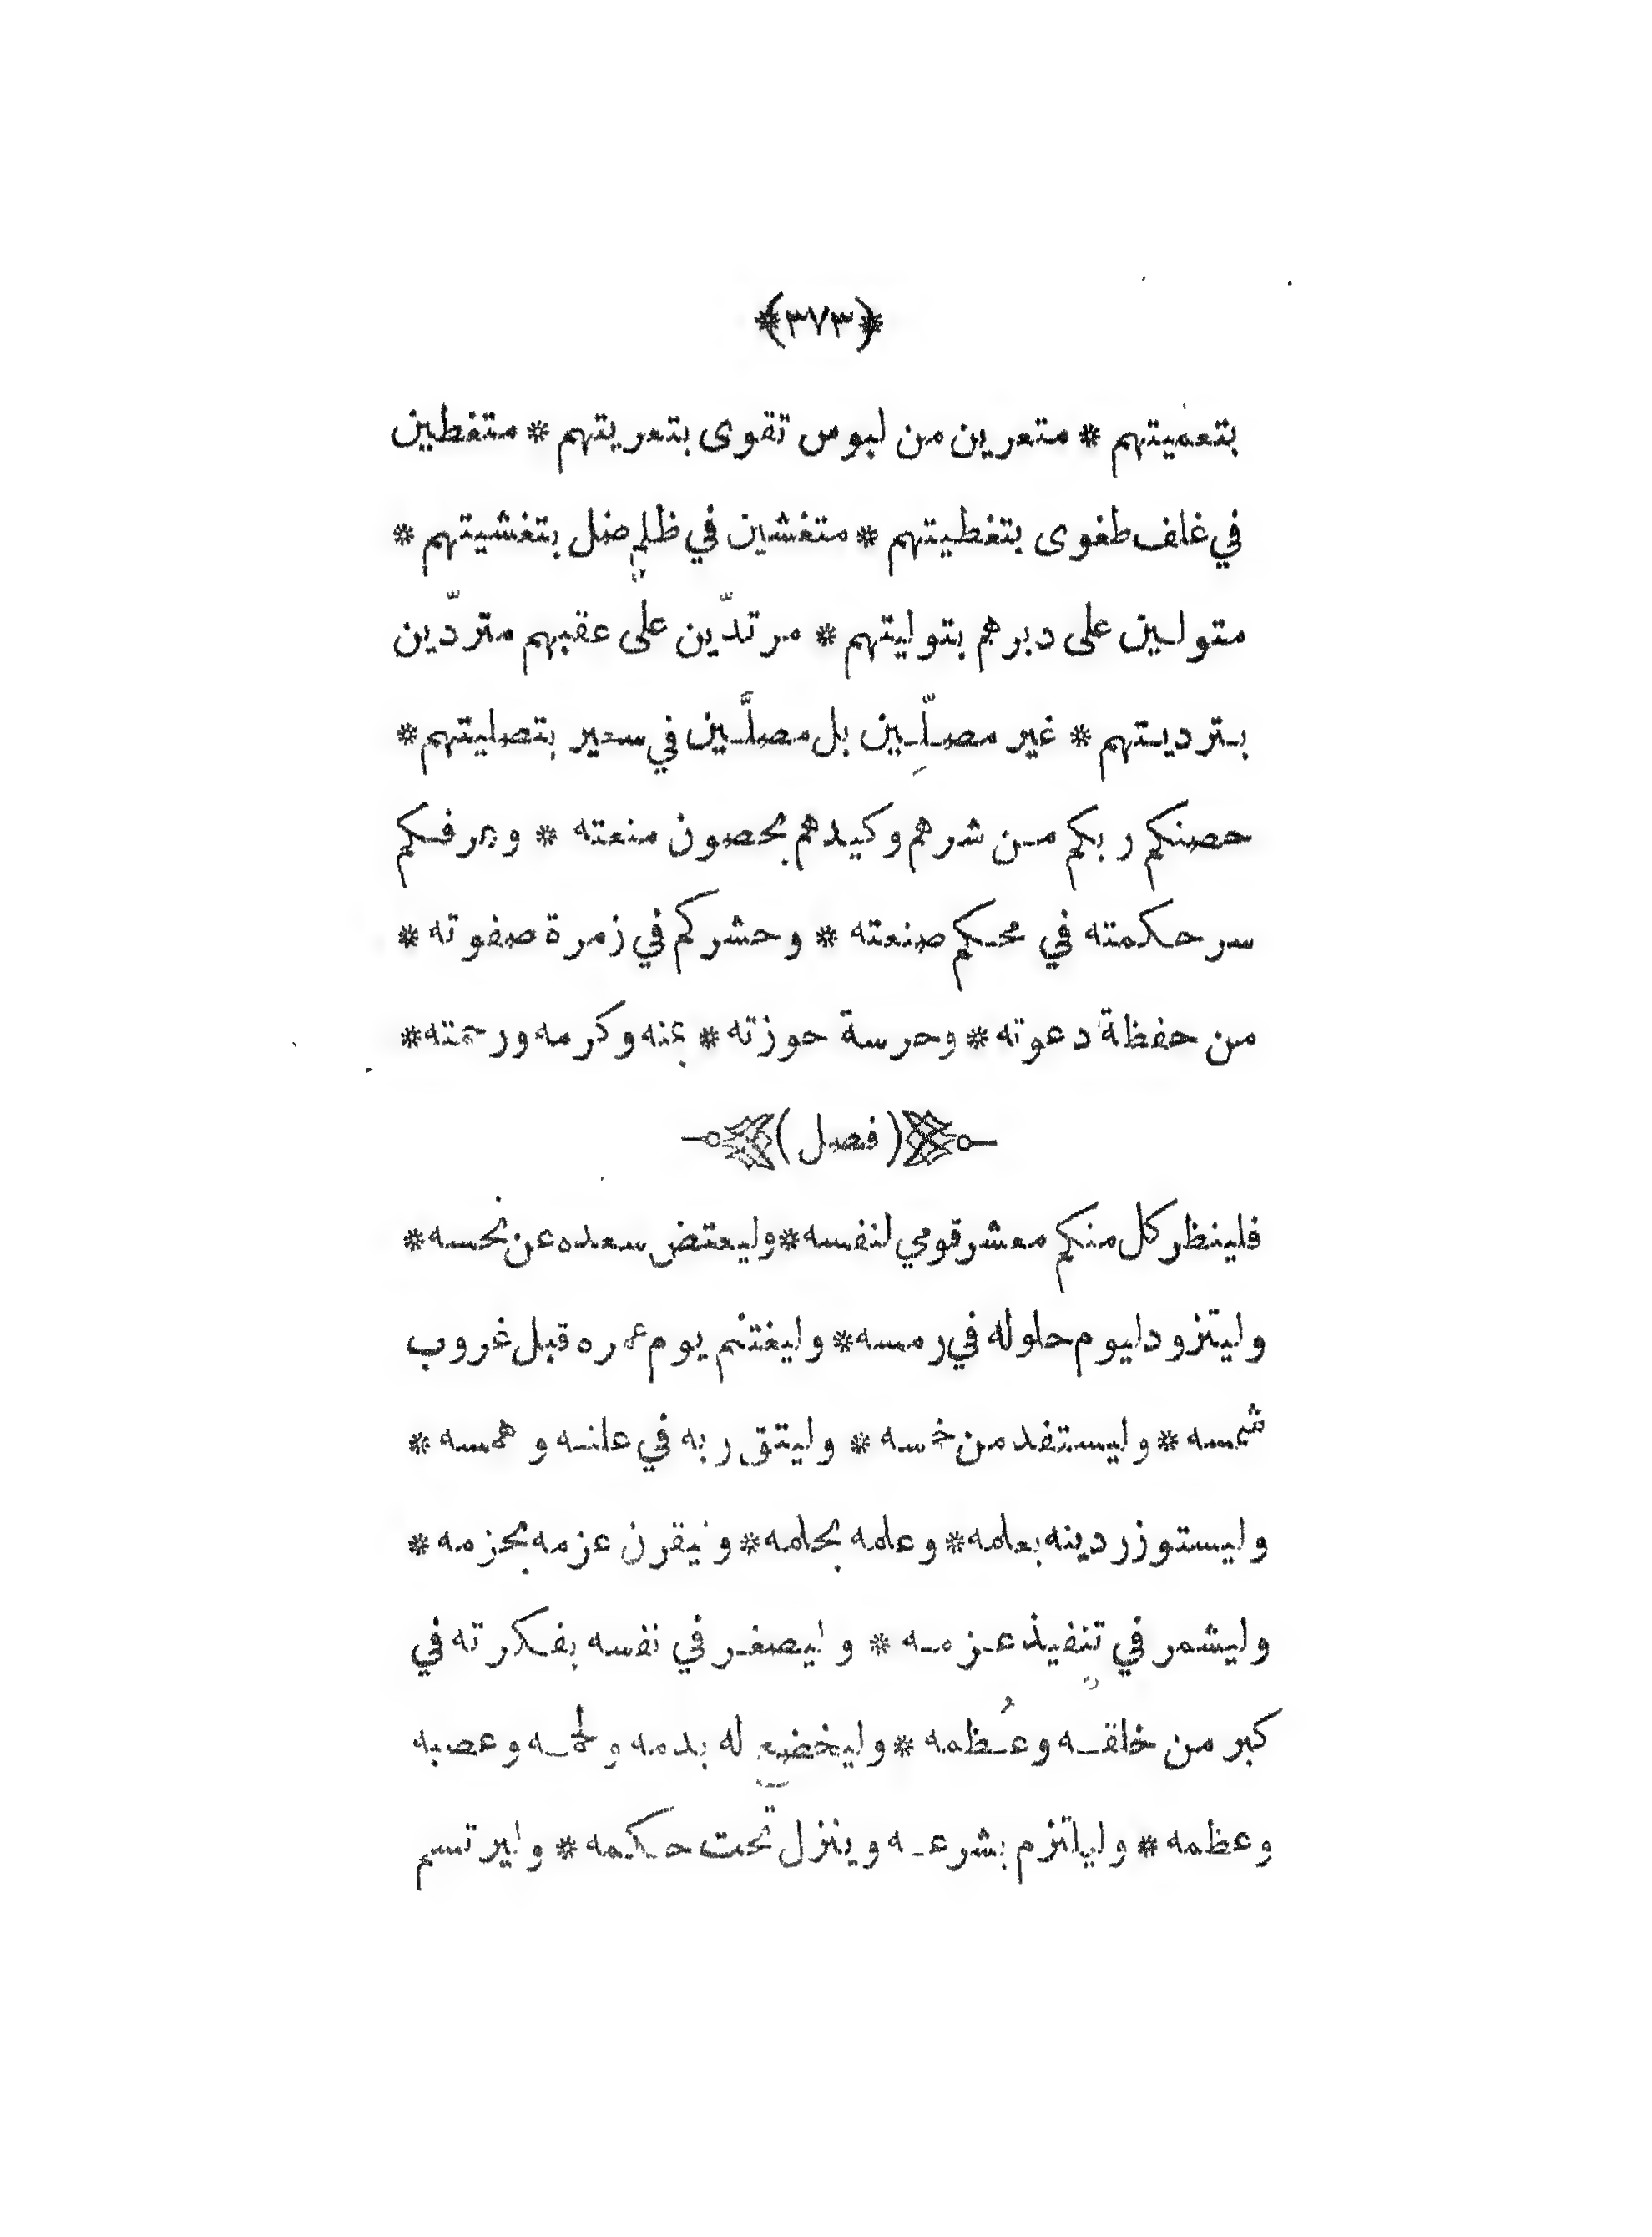 ﴿٣٧٣﴾
بتعميتهم * متعرين من لبوس تقوى بتعريتهم * متغطين
في غلف طغوى بتغطيتهم * متغشين في ظلمٍ ضل بتغشيتهم *
متولين على دبرهم بتوليتهم * مرتدّين على عقبهم متردّين
بترديتهم * غير مصلّـِين بل مصلَّـين في سعير بتصليتهم *
حصنكم ربكم من شرهم وكيدهم بحصون منعته * وعرفكم
سر حكمته في محكم صنعته * وحشركم في زمرة صفوته *
من حفظة دعوته * وحرسة حوزته * بمنه وكرمه ورحمته *
( فصل )
فلينظر كل منكم معشر قومي لنفسه * وليعتض سعده عن نحسه *
وليتزود ليوم حلوله في رمسه * وليغتنم يوم عمره قبل غروب
شمسه * وليستفد من خمسه * وليتق ربه في علنه وهمسه *
وليستوزر دينه بعلمه * وعلمه بحلمه * وليقرن عزمه بحزمه *
وليشمر في تنفيذ عزمه * وليصغر في نفسه بفكرته في
كبر من خلقه وعُظمه * وليخضع له بدمه ولحمه وعصبه
وعظمه * وليلتزم بشرعه وينزل تحت حكمه * وليرتسم